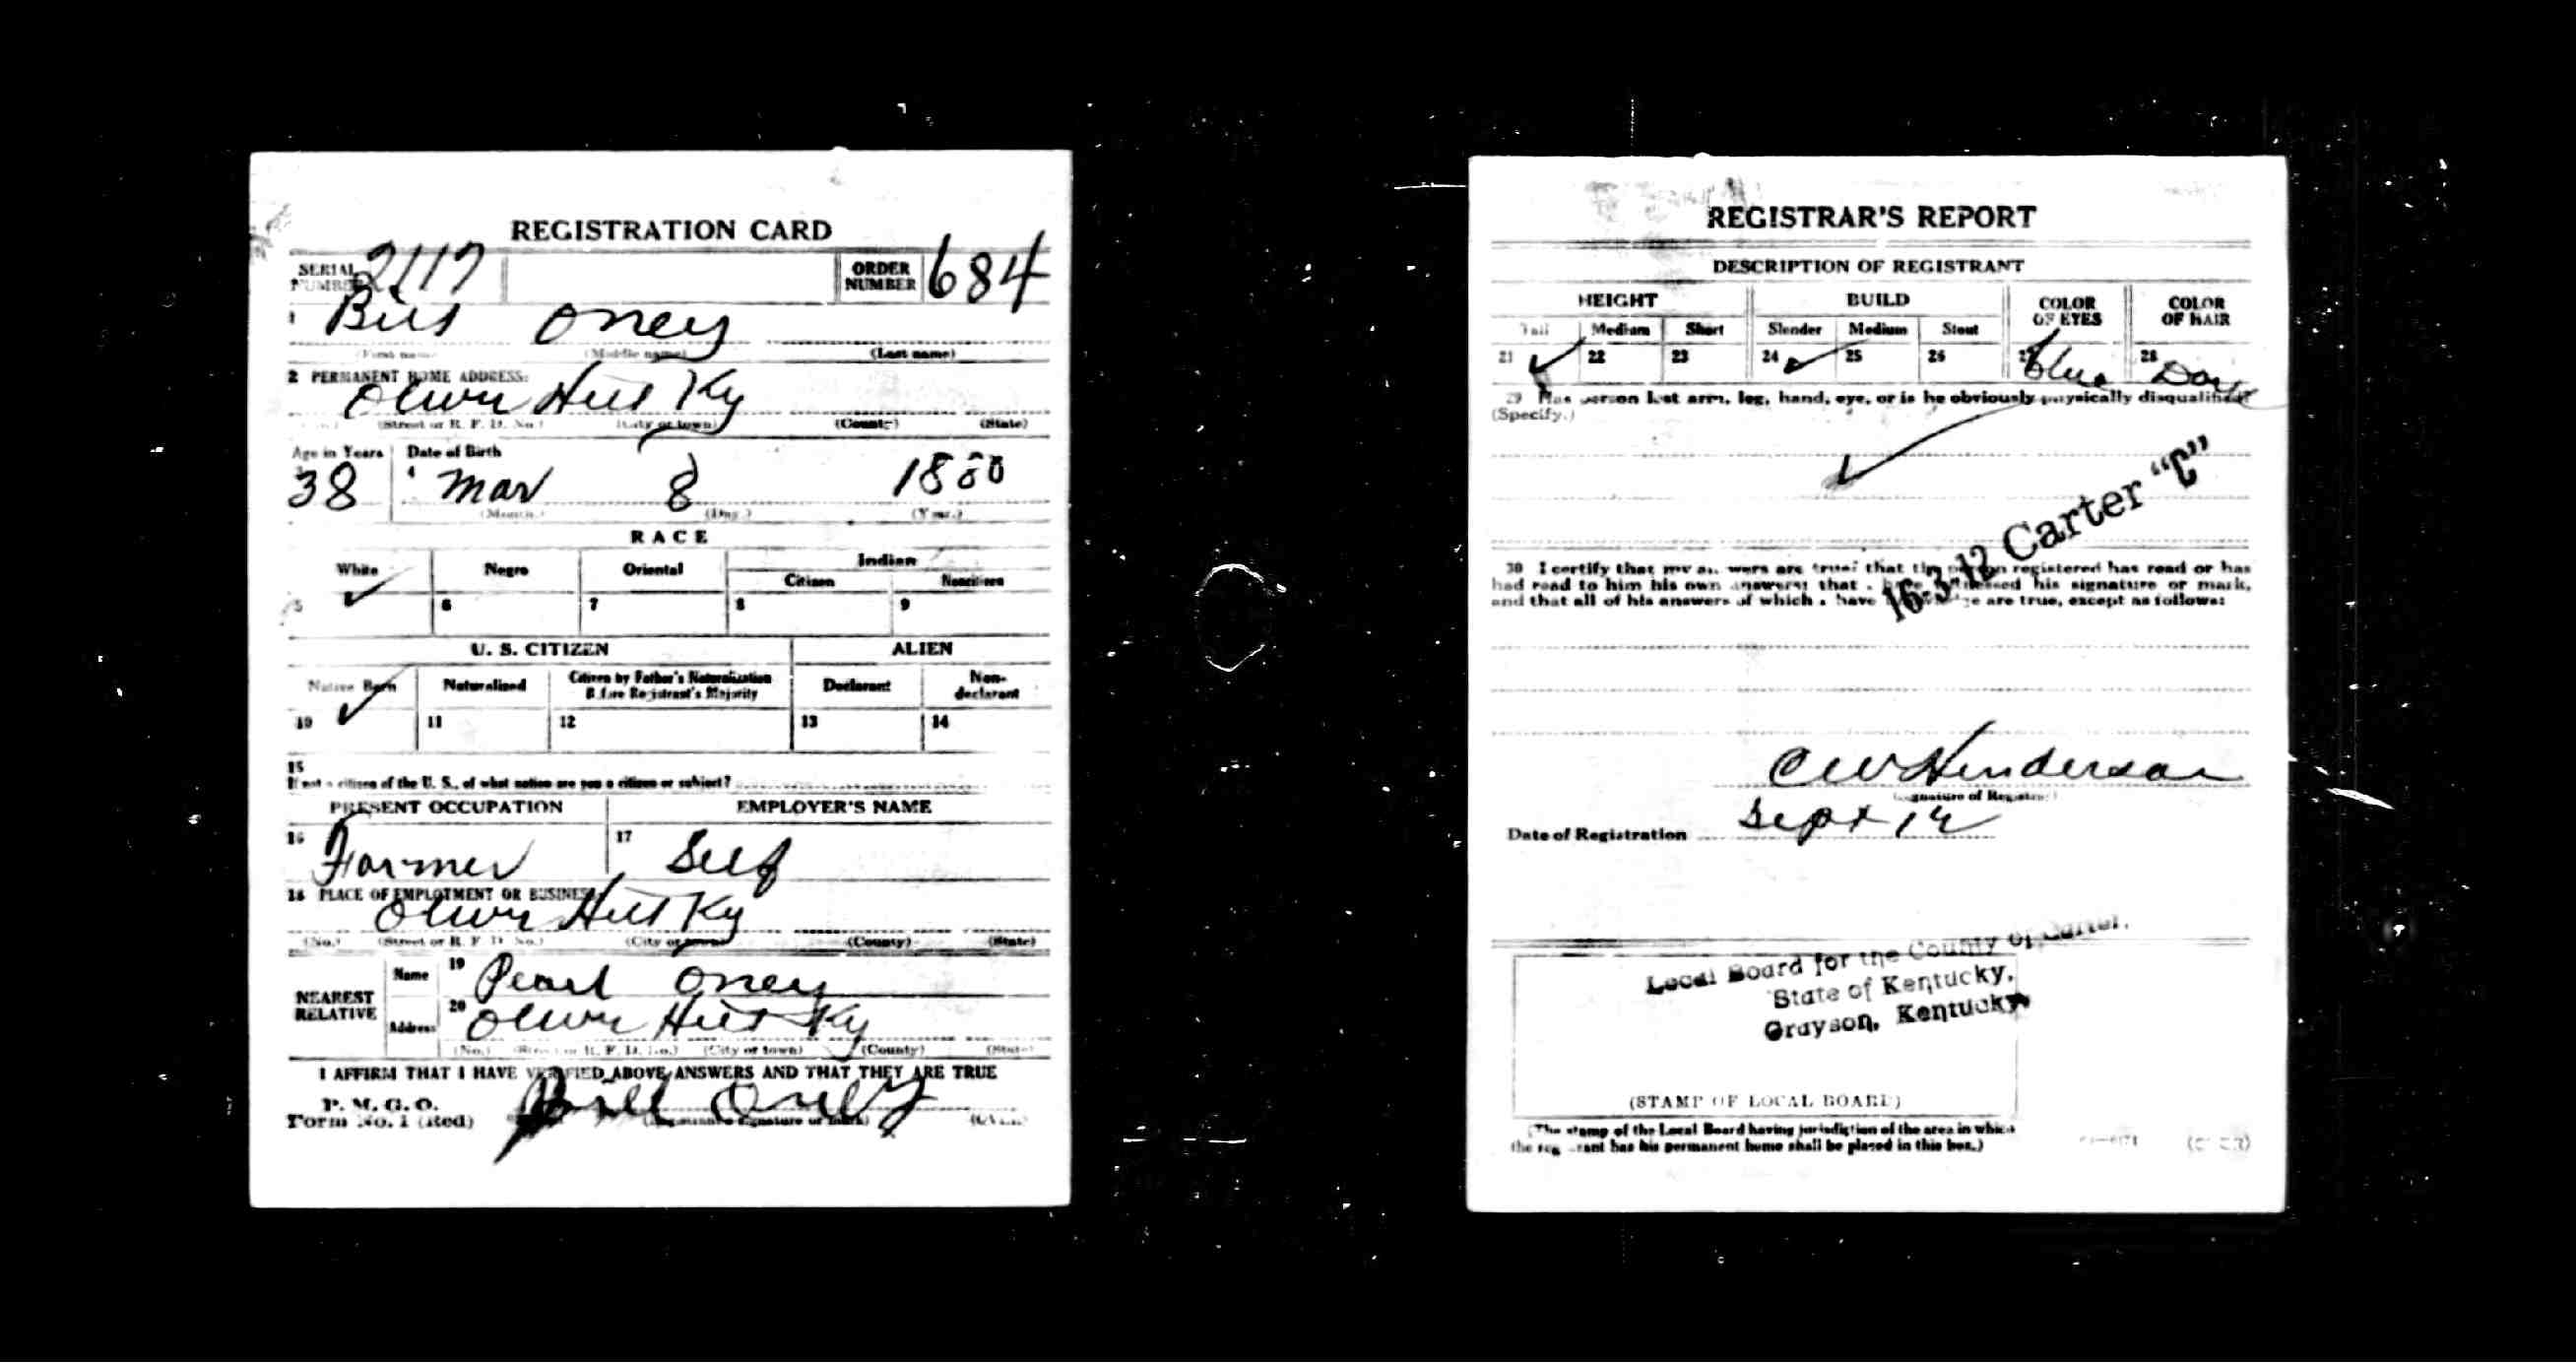 REGISTRATION CARD
SERIAL NUMBER 2117 ORDER NUMBER 684
1 Bill Oney
(First name) (Middle name) (Last name)
2 PERMANENT HOME ADDRESS:
Olive Hill Ky
(Street or R. F. D. No.) (City or town) (County) (State)
Age in Years Date of Birth
38 4 Mar 8 1880
(Month.) (Day.) (Year.)
RACE
White Negro Oriental Indian
Citizen Noncitizen
5 ✓ 6 7 8 9
U. S. CITIZEN ALIEN
Native Born Naturalized Citizen by Father's Naturalization Before Registrant's Majority Declarant Non-declarant
10 ✓ 11 12 13 14
15
If not a citizen of the U. S., of what nation are you a citizen or subject?
PRESENT OCCUPATION EMPLOYER'S NAME
16 Farmer 17 Self
18 PLACE OF EMPLOYMENT OR BUSINESS
Olive Hill Ky
(No.) (Street or R. F. D. No.) (City or town) (County) (State)
NEAREST RELATIVE Name 19 Pearl Oney
Address 20 Olive Hill Ky
(No.) (Street or R. F. D. No.) (City or town) (County) (State)
I AFFIRM THAT I HAVE VERIFIED ABOVE ANSWERS AND THAT THEY ARE TRUE
P. M. G. O.
Form No. 1 (Red) Bill Oney
(Registrant's signature or mark) (OVER)
REGISTRAR'S REPORT
DESCRIPTION OF REGISTRANT
HEIGHT BUILD COLOR OF EYES COLOR OF HAIR
Tall Medium Short Slender Medium Stout
21 ✓ 22 23 24 ✓ 25 26 27 blue 28 Dark
29 Has person lost arm, leg, hand, eye, or is he obviously physically disqualified?
(Specify.)
✓
16-3-12 Carter "C"
30 I certify that my answers are true; that the person registered has read or has
had read to him his own answers; that I have witnessed his signature or mark,
and that all of his answers of which I have knowledge are true, except as follows:
C W Henderson
(Signature of Registrar)
Date of Registration Sept 12
Local Board for the County of Carter,
State of Kentucky,
Grayson, Kentucky.
(STAMP OF LOCAL BOARD)
(The stamp of the Local Board having jurisdiction of the area in which
the registrant has his permanent home shall be placed in this box.)
(OVER)